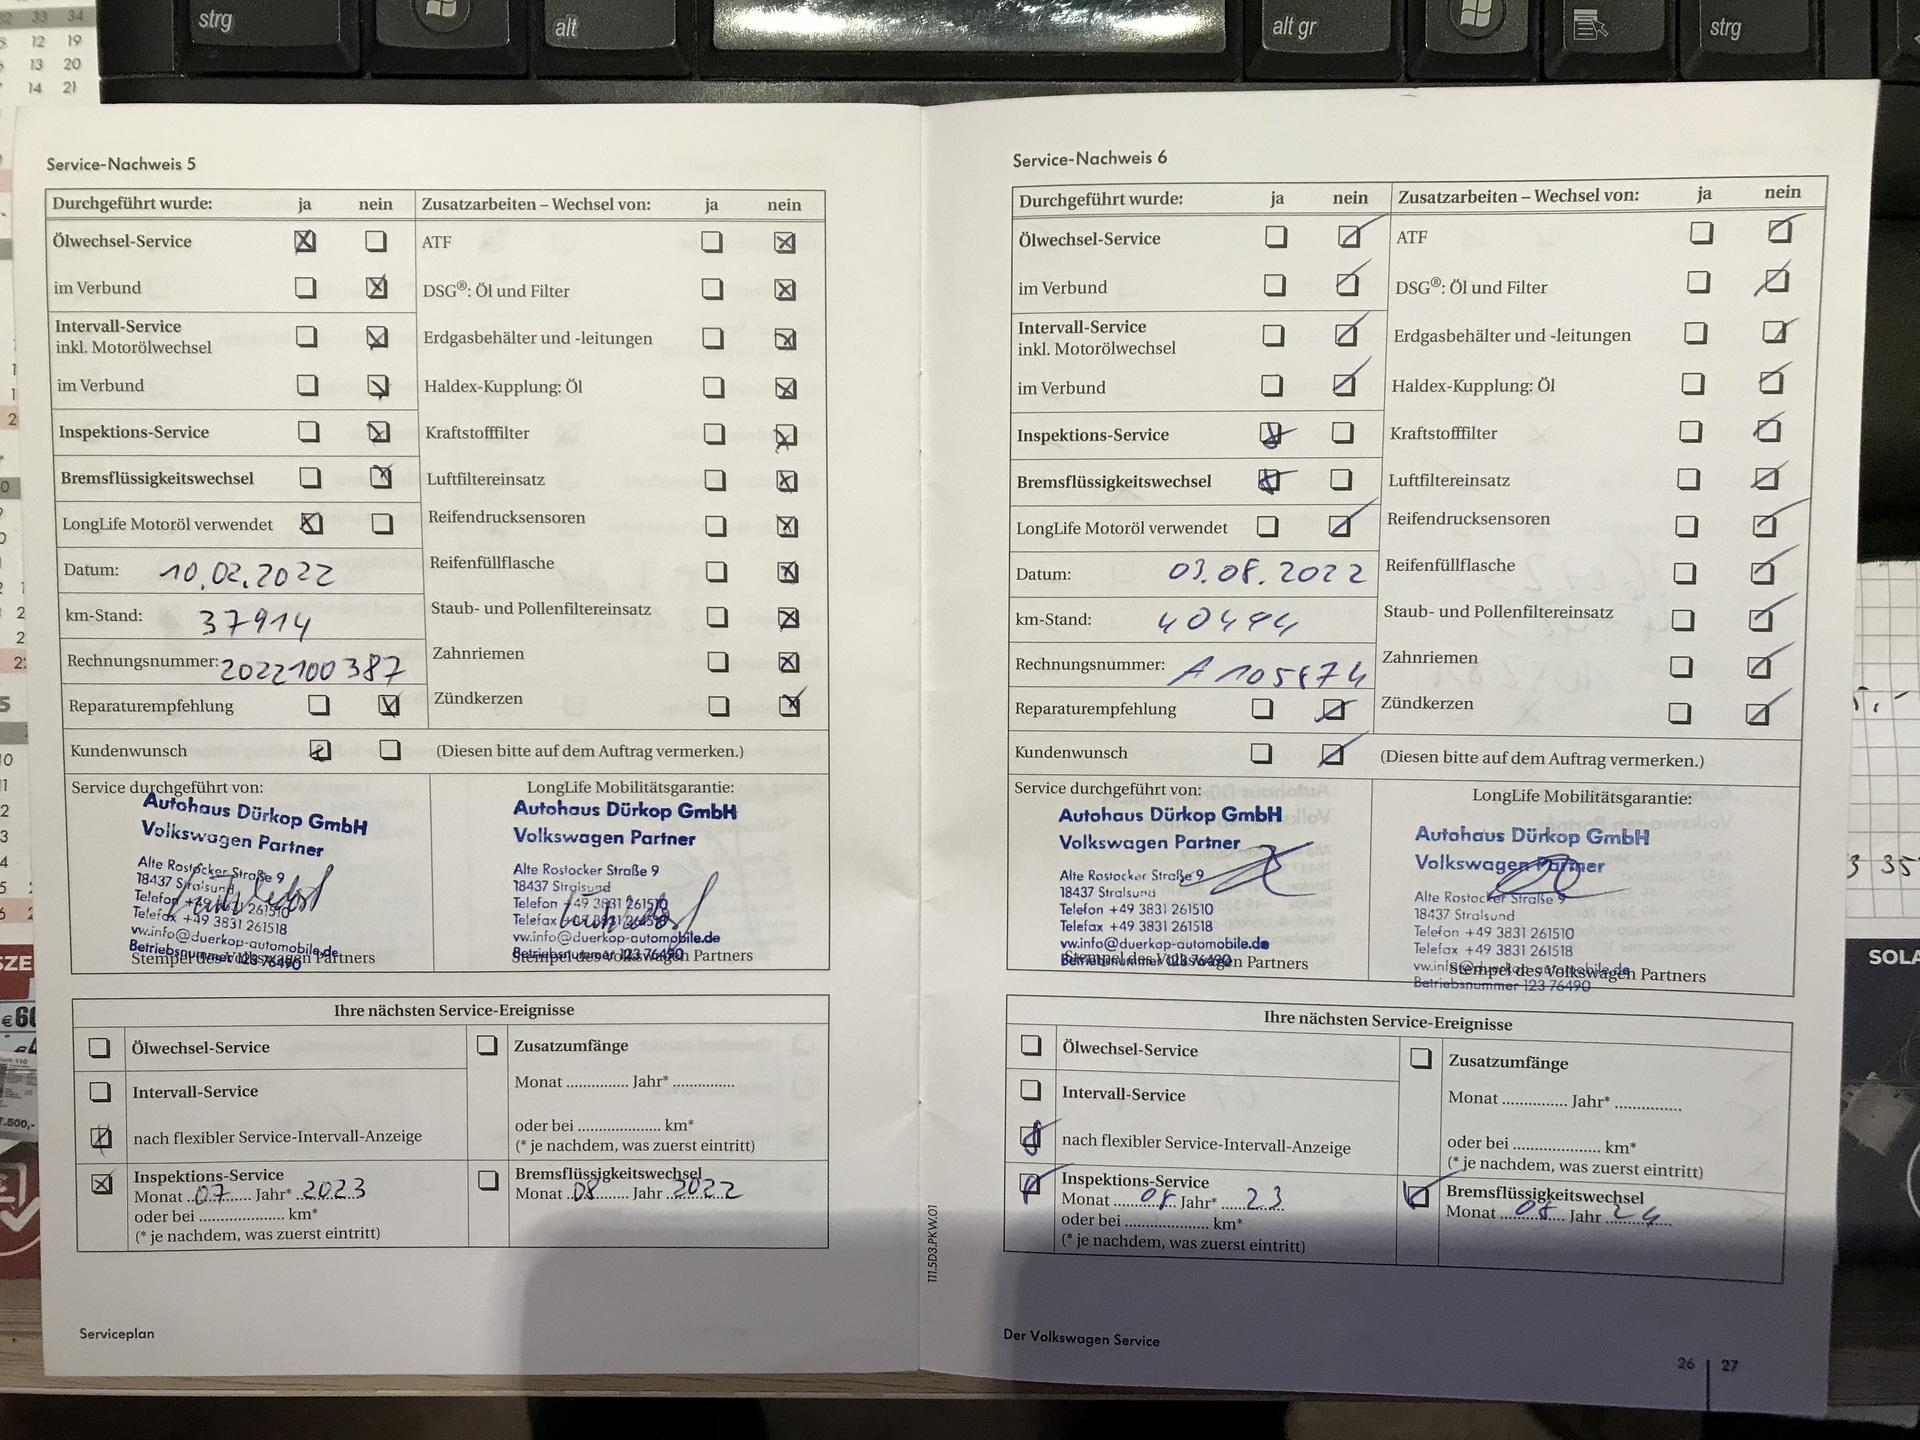 strg
alt
alt gr
strg
33 34
12 19
13 20
14 21
Service-Nachweis 5
Durchgeführt wurde: ja nein
Zusatzarbeiten – Wechsel von: ja nein
Ölwechsel-Service
ATF
im Verbund
DSG®: Öl und Filter
Intervall-Service
inkl. Motorölwechsel
Erdgasbehälter und -leitungen
im Verbund
Haldex-Kupplung: Öl
Inspektions-Service
Kraftstofffilter
Bremsflüssigkeitswechsel
Luftfiltereinsatz
LongLife Motoröl verwendet
Reifendrucksensoren
Datum: 10.02.2022
Reifenfüllflasche
km-Stand: 37914
Staub- und Pollenfiltereinsatz
Rechnungsnummer: 2022100387
Zahnriemen
Reparaturempfehlung
Zündkerzen
Kundenwunsch
(Diesen bitte auf dem Auftrag vermerken.)
Service durchgeführt von:
Autohaus Dürkop GmbH
Volkswagen Partner
Alte Rostocker Straße 9
18437 Stralsund
Telefon +49 3831 261510
Telefax +49 3831 261518
vw.info@duerkop-automobile.de
Betriebsnummer 123 76490
Stempel des Volkswagen Partners
LongLife Mobilitätsgarantie:
Autohaus Dürkop GmbH
Volkswagen Partner
Alte Rostocker Straße 9
18437 Stralsund
Telefon +49 3831 261510
Telefax +49 3831 261518
vw.info@duerkop-automobile.de
Betriebsnummer 123 76490
Stempel des Volkswagen Partners
Ihre nächsten Service-Ereignisse
Ölwechsel-Service
Intervall-Service
nach flexibler Service-Intervall-Anzeige
Inspektions-Service
Monat 07 Jahr* 2023
oder bei .................... km*
(* je nachdem, was zuerst eintritt)
Zusatzumfänge
Monat .............. Jahr* ..............
oder bei .................... km*
(* je nachdem, was zuerst eintritt)
Bremsflüssigkeitswechsel
Monat 08 Jahr 2022
Serviceplan
Service-Nachweis 6
Durchgeführt wurde: ja nein
Zusatzarbeiten – Wechsel von: ja nein
Ölwechsel-Service
ATF
im Verbund
DSG®: Öl und Filter
Intervall-Service
inkl. Motorölwechsel
Erdgasbehälter und -leitungen
im Verbund
Haldex-Kupplung: Öl
Inspektions-Service
Kraftstofffilter
Bremsflüssigkeitswechsel
Luftfiltereinsatz
LongLife Motoröl verwendet
Reifendrucksensoren
Datum: 03.08.2022
Reifenfüllflasche
km-Stand:
Staub- und Pollenfiltereinsatz
Rechnungsnummer:
Zahnriemen
Reparaturempfehlung
Zündkerzen
Kundenwunsch
(Diesen bitte auf dem Auftrag vermerken.)
Service durchgeführt von:
Autohaus Dürkop GmbH
Volkswagen Partner
Alte Rostocker Straße 9
18437 Stralsund
Telefon +49 3831 261510
Telefax +49 3831 261518
vw.info@duerkop-automobile.de
Betriebsnummer 123 76490
Stempel des Volkswagen Partners
LongLife Mobilitätsgarantie:
Autohaus Dürkop GmbH
Volkswagen Partner
Alte Rostocker Straße 9
18437 Stralsund
Telefon +49 3831 261510
Telefax +49 3831 261518
vw.info@duerkop-automobile.de
Betriebsnummer 123 76490
Stempel des Volkswagen Partners
Ihre nächsten Service-Ereignisse
Ölwechsel-Service
Intervall-Service
nach flexibler Service-Intervall-Anzeige
Inspektions-Service
Monat 08 Jahr* 23
oder bei .................... km*
(* je nachdem, was zuerst eintritt)
Zusatzumfänge
Monat .............. Jahr* ..............
oder bei .................... km*
(* je nachdem, was zuerst eintritt)
Bremsflüssigkeitswechsel
Monat 08 Jahr 24
111.5D3.PKW.01
Der Volkswagen Service
26 | 27
SOLA